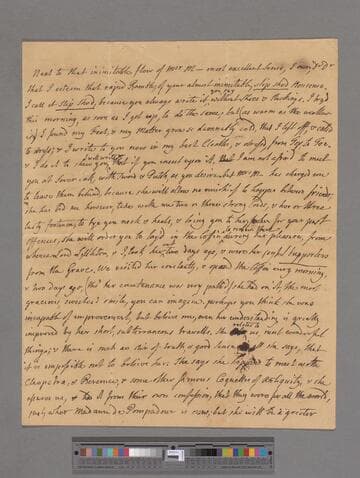 Next to that inimitable flow of Mrs M— most excellent Sense, I may say Dr
that I esteem that rapid Ramble of your almost inimitable, slip shod Nonsence,
I call it Slip Shod, because you always wrote it, without Shoes & Stockings, I try'd
this morning, as soon as I got up, to do the same, but (as warm as the weather
is) I found my Feet, & my Matter grow so damnably cold, that I left off, & call'd
to dress; & I write to you now in my best Cloaths, & dress'd from Top to Toe,
& I do it to shew you, that if you insist upon it, that I am not afraid to meet
you at Four oClock, with Sword & Pistols as you desire, but Mrs M. has charged me
to leave them behind, because she will allow no mischief to happen between friends,
she has bid me however, take with me two or three strong Cords, & two or three
lusty footmen, to tye you neck & heels, & bring you to her, for your past
offences, she will order you to be lay'd in the Coffin during her pleasure, from
whence Lord Lyttelton, & I, took her two days ago, & were her joyful supporters
from the Grave. We visited her constantly, & open'd the Coffin every morning,
& two days ago, tho' her countenance was very pallid, she had on it, the most
gracious sweetest smile, you can imagine. perhaps you think she was
incapable of improvement, but believe me, even her understanding is greatly
improved by her short, subterraneous travells, she tells us most wonderful
things; & there is such an air of truth & good sense in all she says, that
it is impossible not to believe her. She says she happen'd to meet with
Cleopatra, & Berenice, & some other famous Coquettes of Antiquity, & she
assures us, & had it from their own confession, that they were for all the world,
just what Madame de Pompadour is now, but she will be a greater